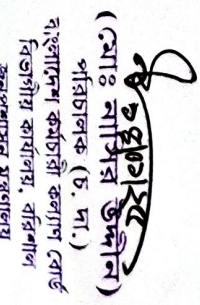 (মোঃ নাসির উদ্দীন)
পরিচালক (উ. দ.)
বাংলাদেশ কর্মচারী কল্যাণ বোর্ড
বিভাগীয় কার্যালয়, বরিশাল
জনপ্রশাসন মন্ত্রণালয়